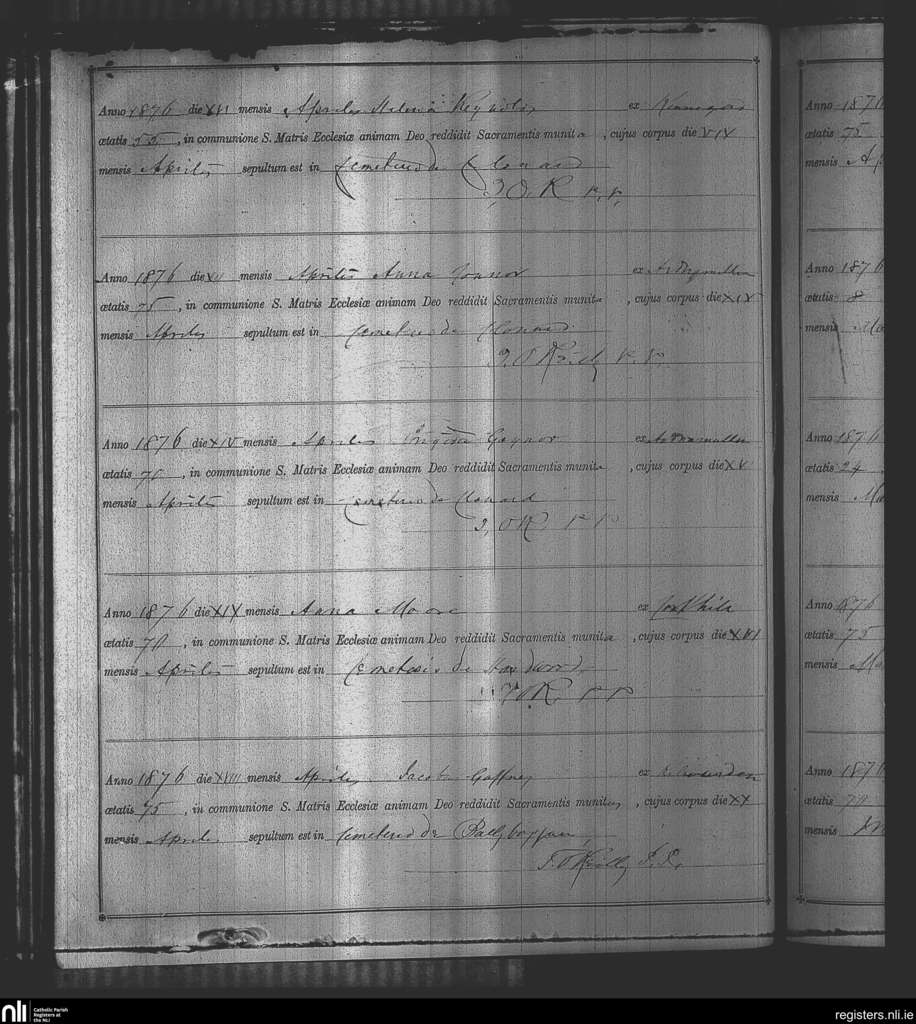 Anno 1876 die XVI mensis Aprilis Reynolds ex
ætatis 55, in communione S. Matris Ecclesiæ animam Deo reddidit Sacramentis munita, cujus corpus die
mensis Aprilis sepultum est in Cemeterio de Clonard
J. O. R. P. P.
Anno 1876 die mensis Aprilis Anna Connor ex
ætatis 75, in communione S. Matris Ecclesiæ animam Deo reddidit Sacramentis munita, cujus corpus die XIV
mensis Aprilis sepultum est in Cemeterio de Clonard
J. O Reilly P. P.
Anno 1876 die XIV mensis Aprilis Brigida Gaynor ex
ætatis 70, in communione S. Matris Ecclesiæ animam Deo reddidit Sacramentis munita, cujus corpus die XV
mensis Aprilis sepultum est in Cemeterio de Clonard
J. O R P P
Anno 1876 die XIX mensis Anna Moore ex
ætatis 70, in communione S. Matris Ecclesiæ animam Deo reddidit Sacramentis munita, cujus corpus die XVI
mensis Aprilis sepultum est in Cemeterio de
J. O R. P P
Anno 1876 die XVIII mensis Aprilis Jacobus Gaffney ex
ætatis 75, in communione S. Matris Ecclesiæ animam Deo reddidit Sacramentis munitus, cujus corpus die XX
mensis Aprilis sepultum est in Cemeterio de
J. O Reilly P. P.
Anno 1876
ætatis 75
mensis
Anno 187
ætatis 8
mensis
Anno 1876
ætatis 24
mensis
Anno 1876
ætatis 75
mensis
Anno 1876
ætatis 70
mensis
nli Catholic Parish
Registers at
the NLI
registers.nli.ie